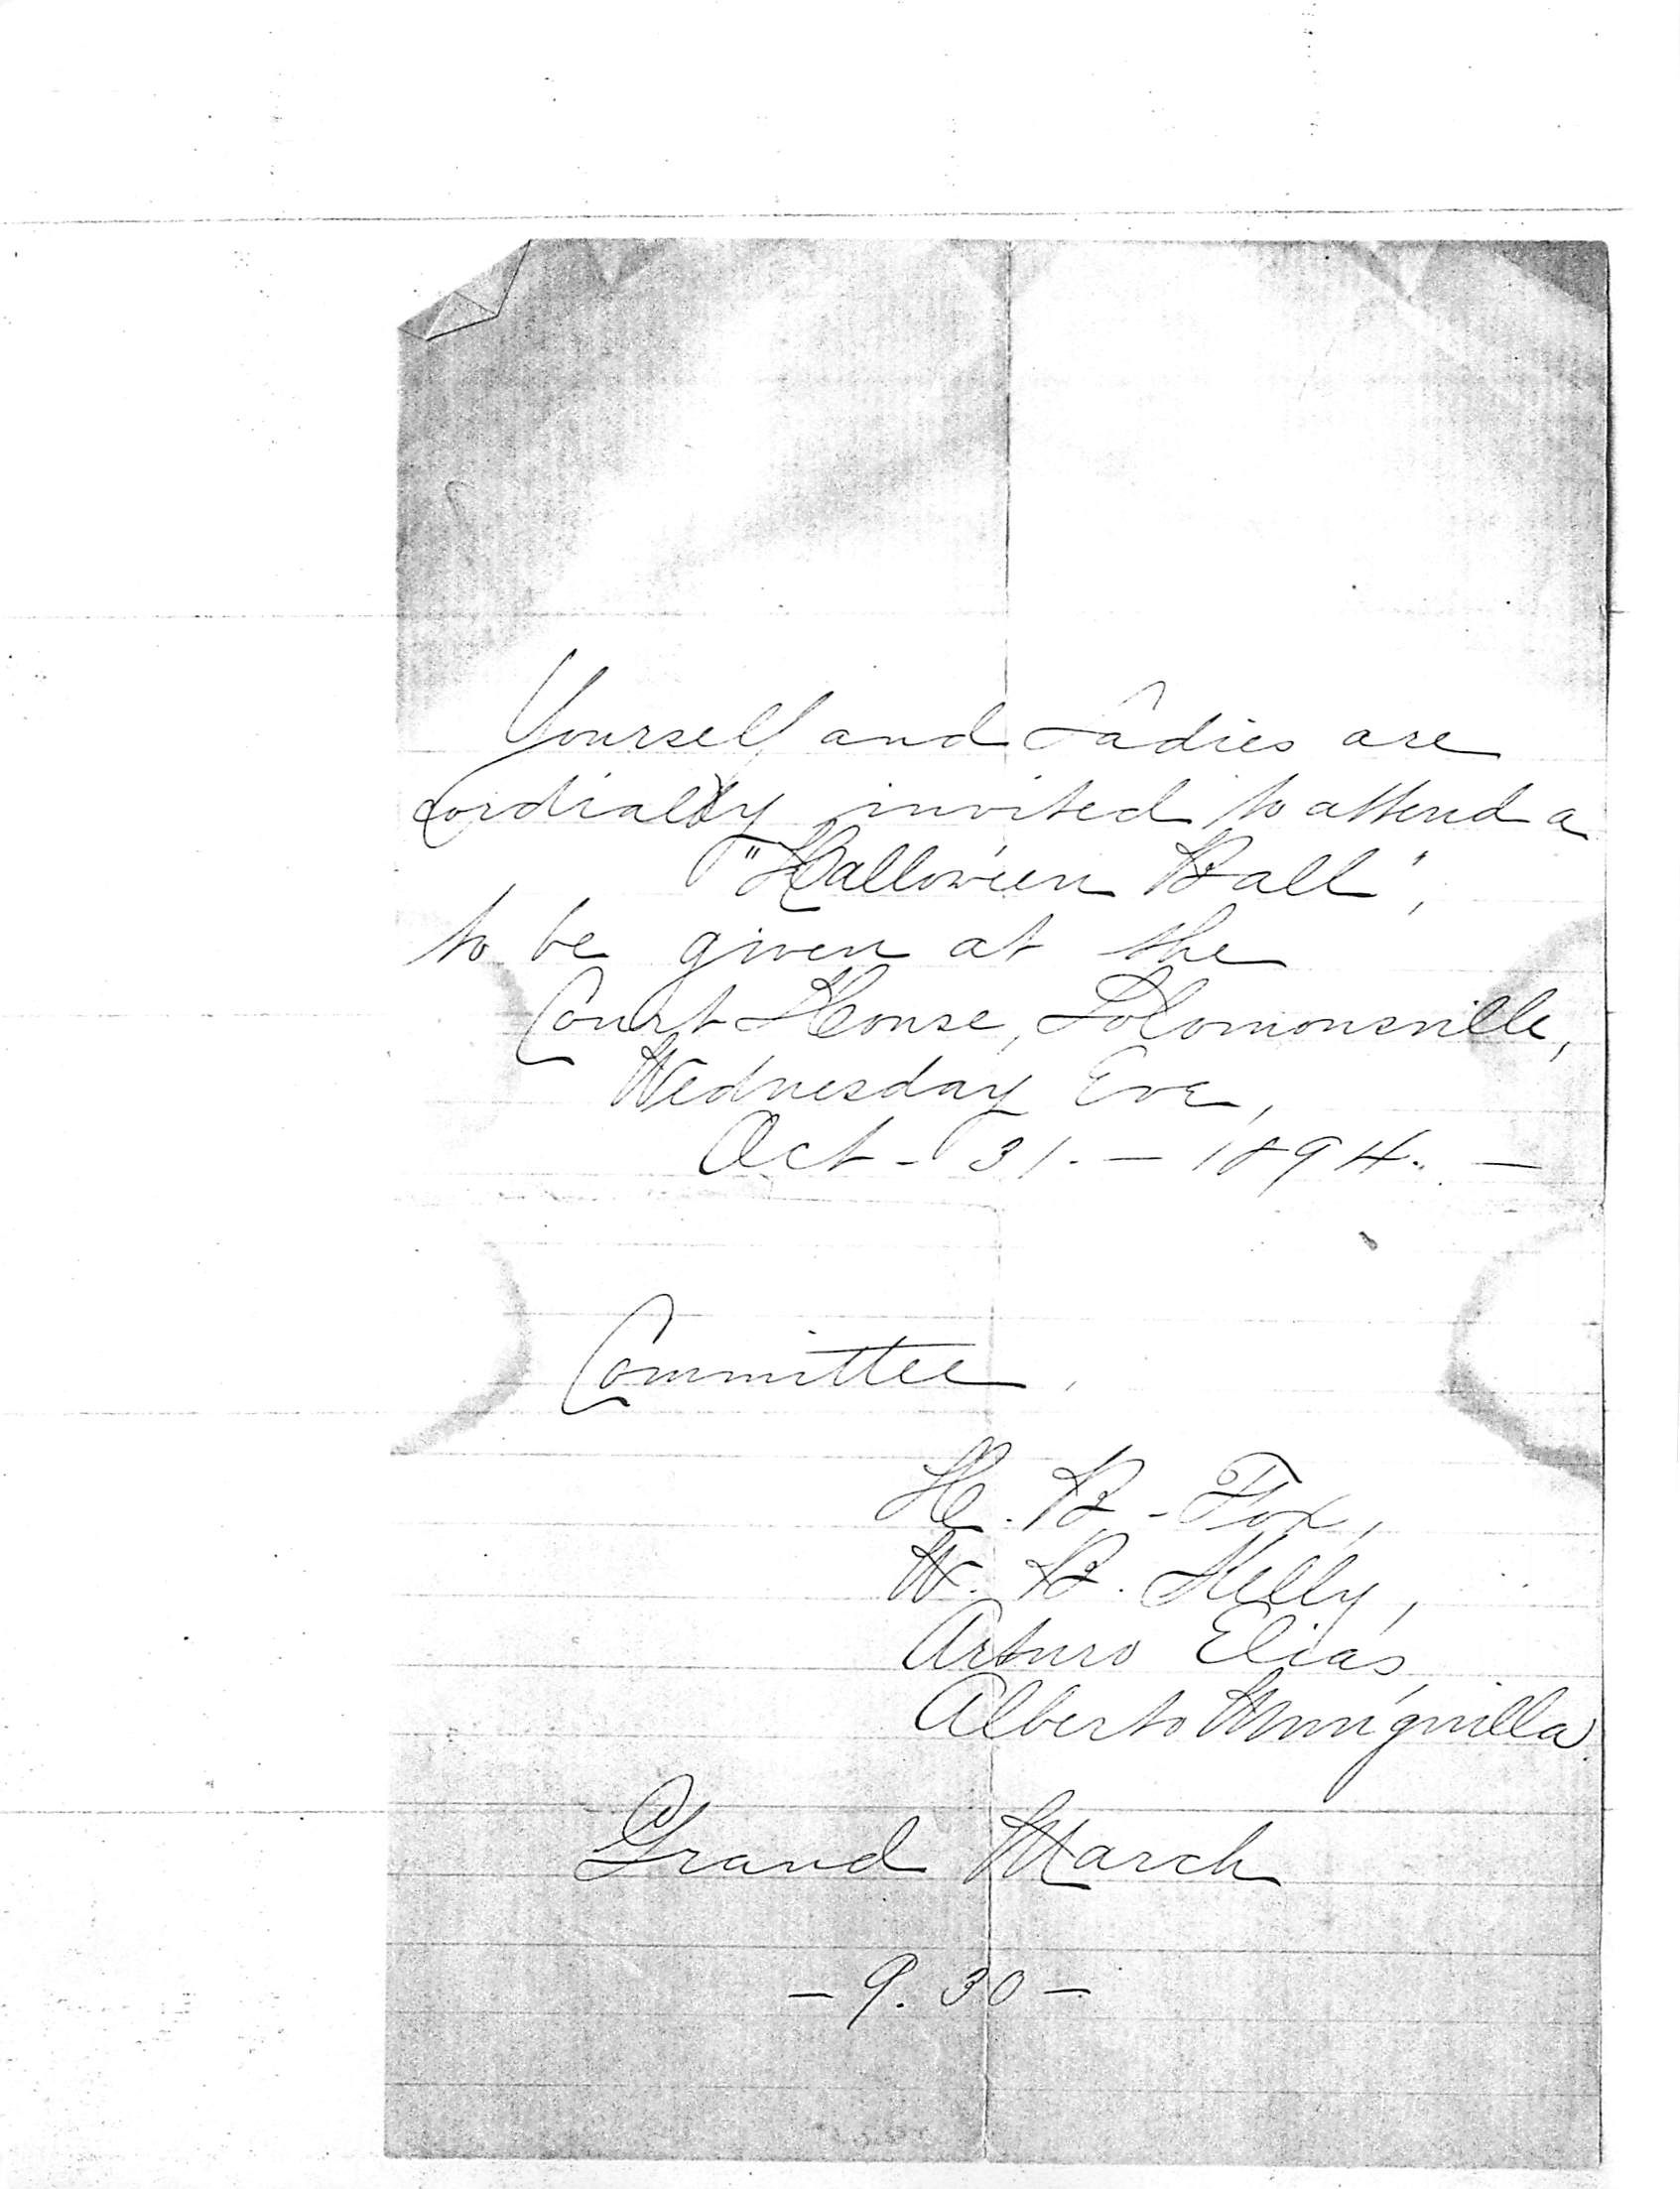 Yourself and Ladies are
cordially invited to attend a
"Hallowe'en Ball",
to be given at the
Court House, Solomonsville,
Wednesday Eve,
Oct - 31. — 1894. —
Committee,
H. B. Fox,
W. B. Kelly,
Arturo Elias,
Alberto
Grand March
— 9.30 —